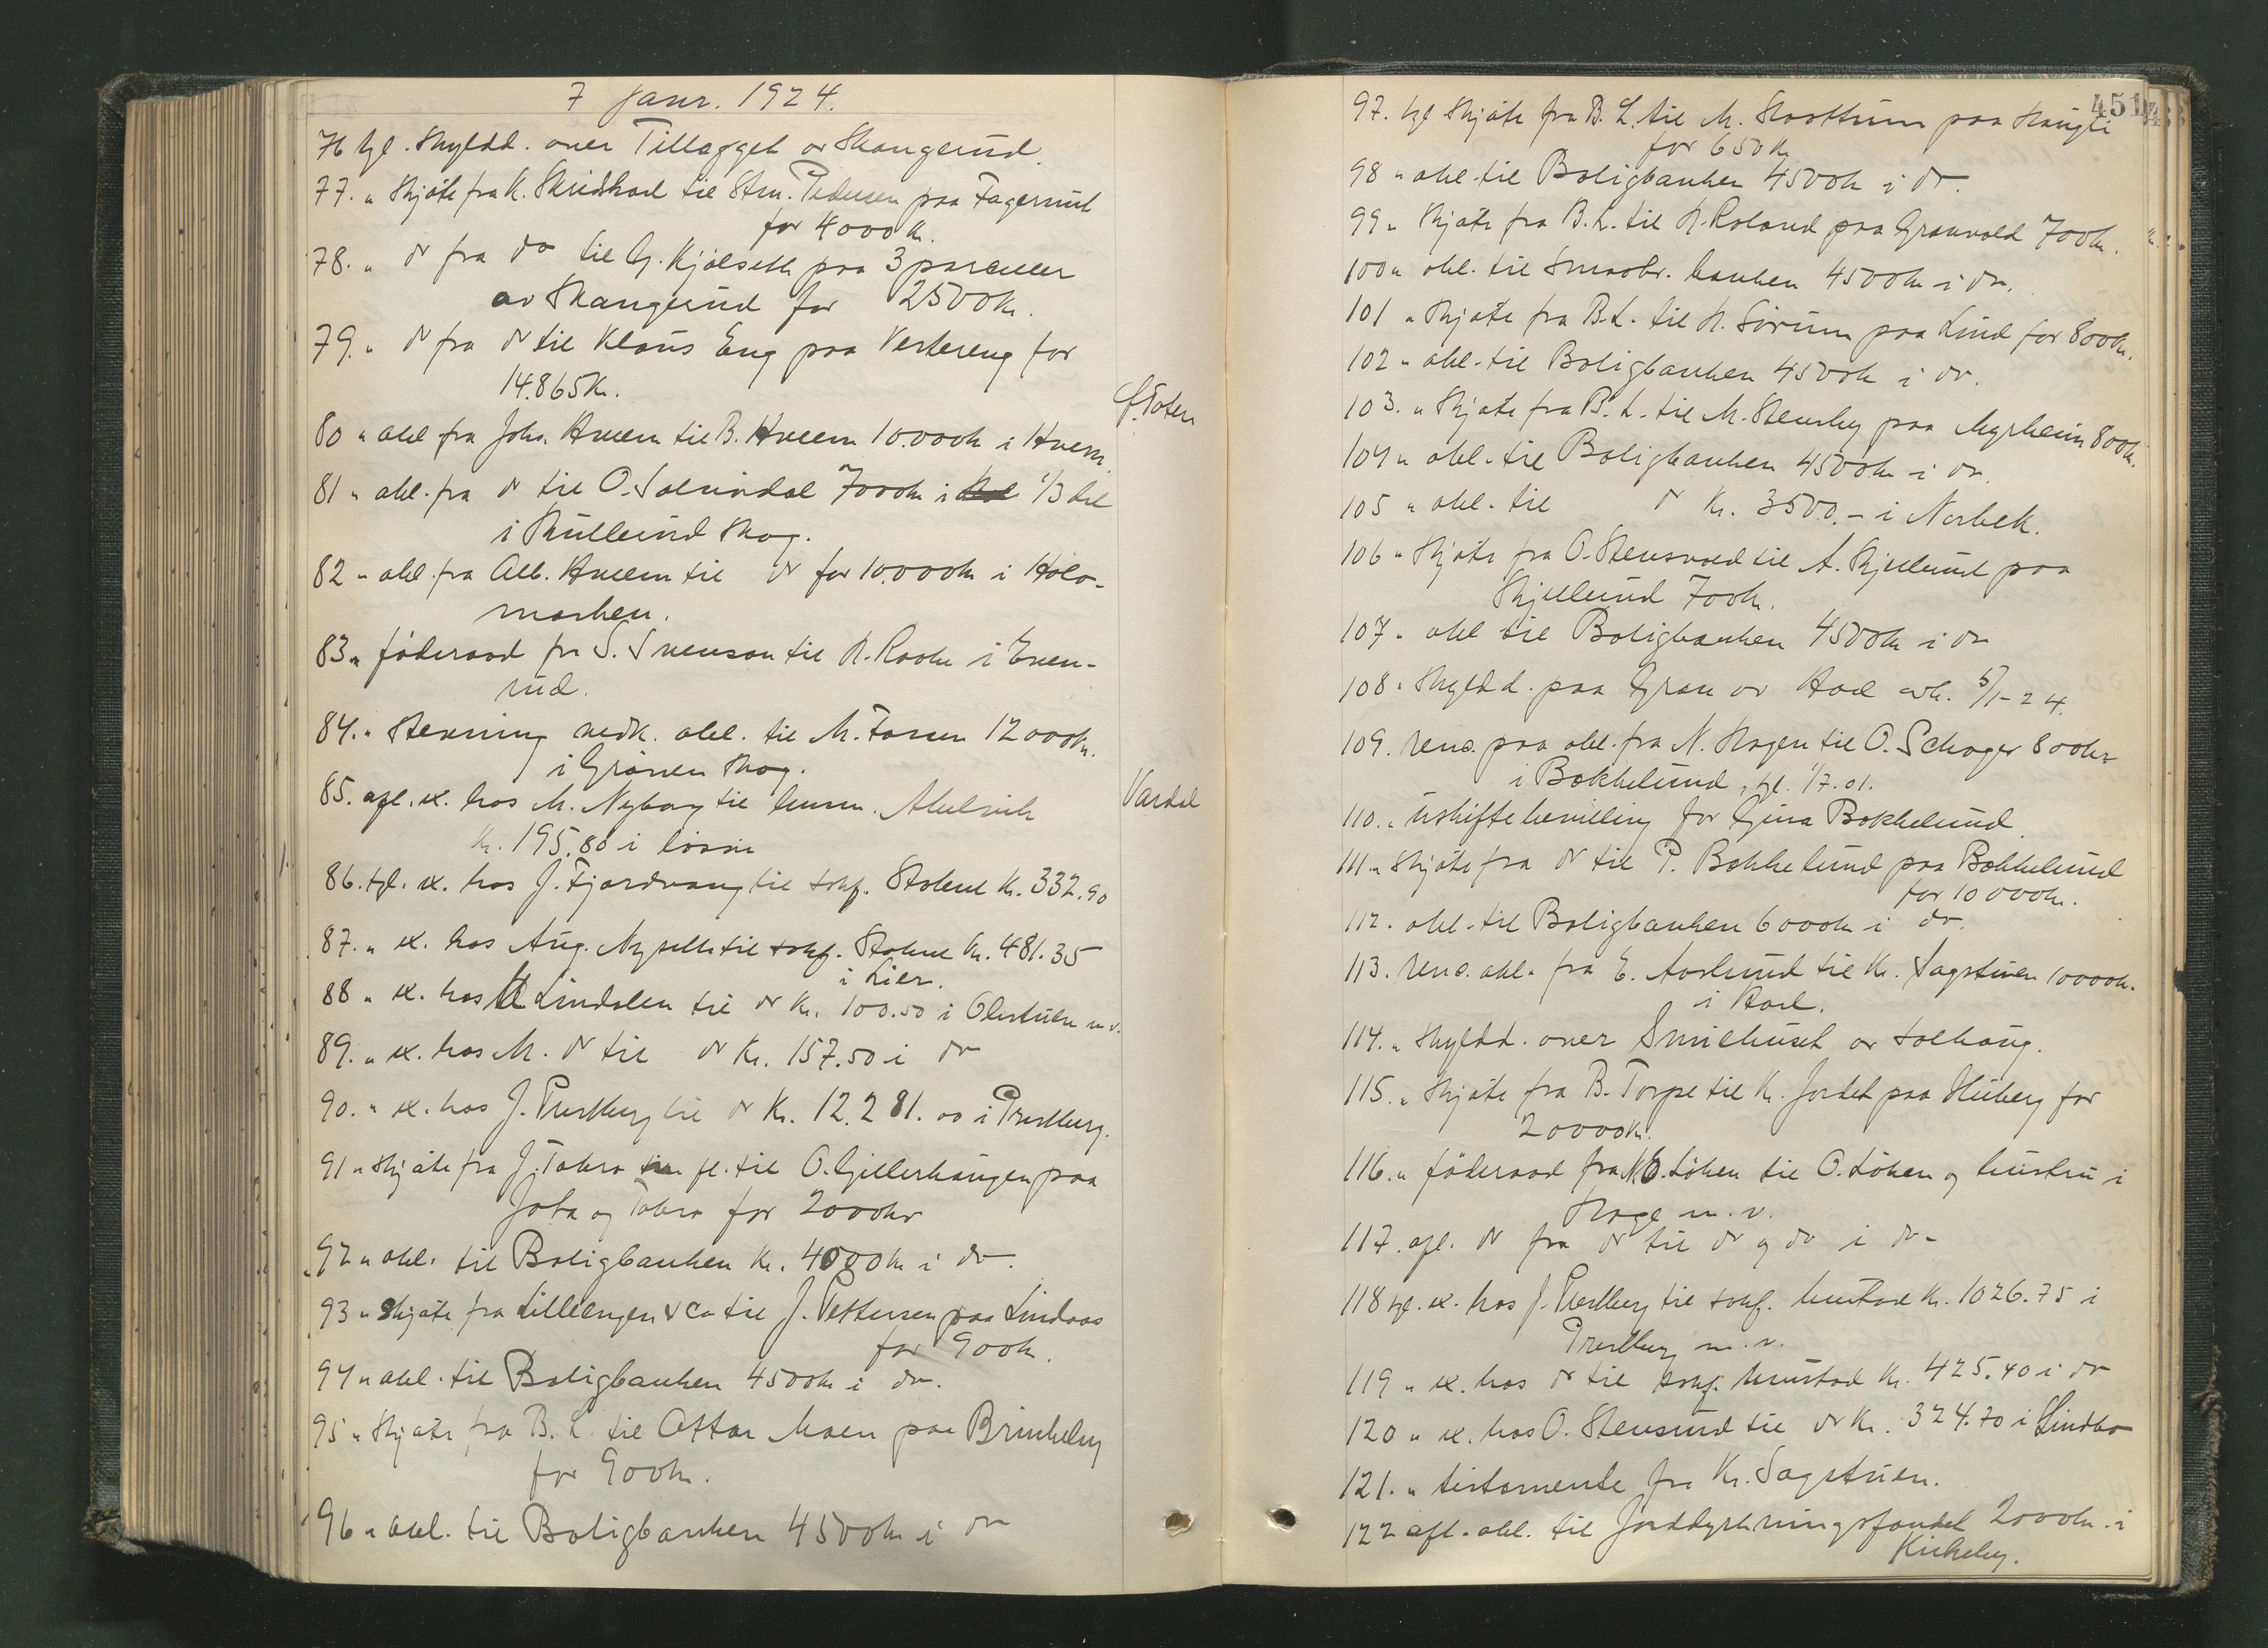 7 Janr. 1924.
76 tgl. Skyldd. over Tillægget av Skangerud.
77. " Skjøte fra K. Skridshoel til Stm. Pedersen paa Fagerlund
for 4000 kr.
78. " do fra do til G. Kjølseth paa 3 parceller
av Skangerud for 2500 kr.
79. " do fra do til Klaus Eng paa Vestereng for
14.865 Kr.
Ø. Toten
80 " obl fra Johs. Hveem til B. Hveem 10.000 kr i Hveem.
81 " obl. fra do til O. 7000 kr i 1/3 del
i Skullerud Skog.
82 " obl. fra Alb. Hveem til do for 10.000 kr i Holo-
marken.
83 " føderaad fra S. Svenson til i Even-
rud.
84. " Stevning vedk. obl. til M. Fossen 12000 kr.
i Grønen Skog.
85. afl. ex. hos M. Nyborg til
Vardal
Kr. 195.80 i løsøre
86. tgl. ex. hos J. Fjordvang til sokf. Stabel Kr. 332.90
87. " ex. hos Aug. Nyseth til sokf. Stabel Kr. 481.35
i Lier.
88 " ex. hos Lindalen til do Kr. 100.50 i Olestuen m.v.
89. " ex. hos M. do til do Kr. 157.50 i do
90. " ex. hos J. Prestberg til do Kr. 12.281.00 i Prestberg.
91 " Skjøte fra J. Tobro fl. til O. Gillerhaugen paa
og Tobro for 2000 kr
92 " obl. til Boligbanken Kr. 4000 kr i do.
93 " Skjøte fra Lillengen & Co til J. Pettersen paa Lindaas
for 900 kr.
94 " obl. til Boligbanken 4500 kr i do.
95 " Skjøte fra B. L. til Ottar Moen paa Brinkeby
for 900 kr.
96 " obl. til Boligbanken 4500 kr i do
451
97. tgl Skjøte fra B. L. til M. Skottum paa Haugli
for 650 kr
98 " obl. til Boligbanken 4500 kr i do.
99 " Skjøte fra B. L. til H. Roland paa Granvold 700 kr.
100 " obl. til Smaabr. banken 4500 kr i do.
101 " Skjøte fra B. L. til H. Sørum paa Lind for 800 kr.
102 " obl. til Boligbanken 4500 kr i do.
103. " Skjøte fra B. L. til M. Stensby paa Myrheim 800 kr.
104 " obl. til Boligbanken 4500 kr i do.
105 " obl. til do Kr. 3500.- i Norbek.
106 " Skjøte fra O. Stensvold til A. Skjellerud paa
Skjellerud 700 kr.
107. " obl til Boligbanken 4500 kr i do
108. " Skyldd. paa Gran av Hoel avh. 5/1-24.
109. Rens. paa obl. fra N. Hagen til O. Schager 800 kr
i Bokkelund, tgl. 1/7.01.
110. " Uskiftebevilling for Gina Bokkelund.
111 " Skjøte fra do til P. Bokkelund paa Bokkelund
for 10000 kr.
112. obl. til Boligbanken 6000 kr i do.
113. Rens. obl. fra E. Aaslund til K. Sagstuen 10000 kr.
i Hoel.
114. " Skyldd. over Smiehuset av Solhaug.
115. " Skjøte fra B. Torpe til K. Jordet paa Heiberg for
20000 kr.
116. " føderaad fra N. O. Løken til O. Løken og hustru i
Hage m. v.
117. afl. do fra do til do og do i do.
118 tgl. ex. hos J. Prestberg til sokf. Mustad Kr. 1026.75 i
Prestberg m. v.
119 " ex. hos do til sokf. Mustad Kr. 425.40 i do
120 " ex. hos O. Stensrud til do Kr. 324.70 i Lindbo
121. " testamente fra Kr. Sagstuen.
122 afl. obl. til Jorddyrkningsfondet 2000 kr. i
Kirkeby.